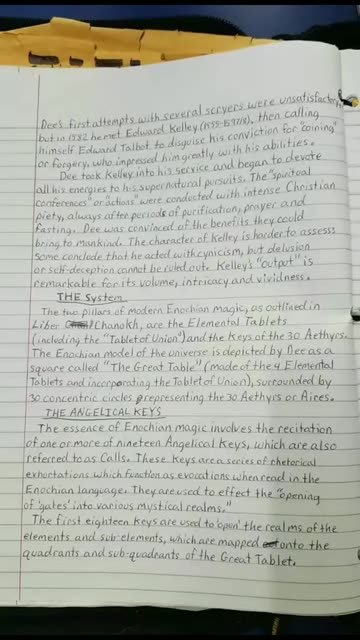 Dee's first attempts with several scryers were unsatisfactory,
but in 1582 he met Edward Kelley (1555-1597/8), then calling
himself Edward Talbot to disguise his conviction for "coining"
or forgery, who impressed him greatly with his abilities.
Dee took Kelley into his service and began to devote
all his energies to his supernatural pursuits. The "spiritual
conferences" or "actions" were conducted with intense Christian
piety, always after periods of purification, prayer and
fasting. Dee was convinced of the benefits they could
bring to mankind. The character of Kelley is harder to assess
some conclude that he acted with cynicism, but delusion
or self-deception cannot be ruled out. Kelley's "output" is
remarkable for its volume, intricacy and vividness.
THE System
The two pillars of modern Enochian magic, as outlined in
Liber Chanokh, are the Elemental Tablets
(including the "Tablet of Union") and the Keys of the 30 Aethyrs.
The Enochian model of the universe is depicted by Dee as a
square called "The Great Table" (made of the 4 Elemental
Tablets and incorporating the Tablet of Union), surrounded by
30 concentric circles representing the 30 Aethyrs or Aires.
THE ANGELICAL KEYS
The essence of Enochian magic involves the recitation
of one or more of nineteen Angelical Keys, which are also
referred to as Calls. These keys are a series of rhetorical
exhortations which function as evocations when read in the
Enochian language. They are used to effect the "opening
of 'gates' into various mystical realms."
The first eighteen keys are used to 'open' the realms of the
elements and sub-elements, which are mapped onto the
quadrants and sub-quadrants of the Great Tablet.